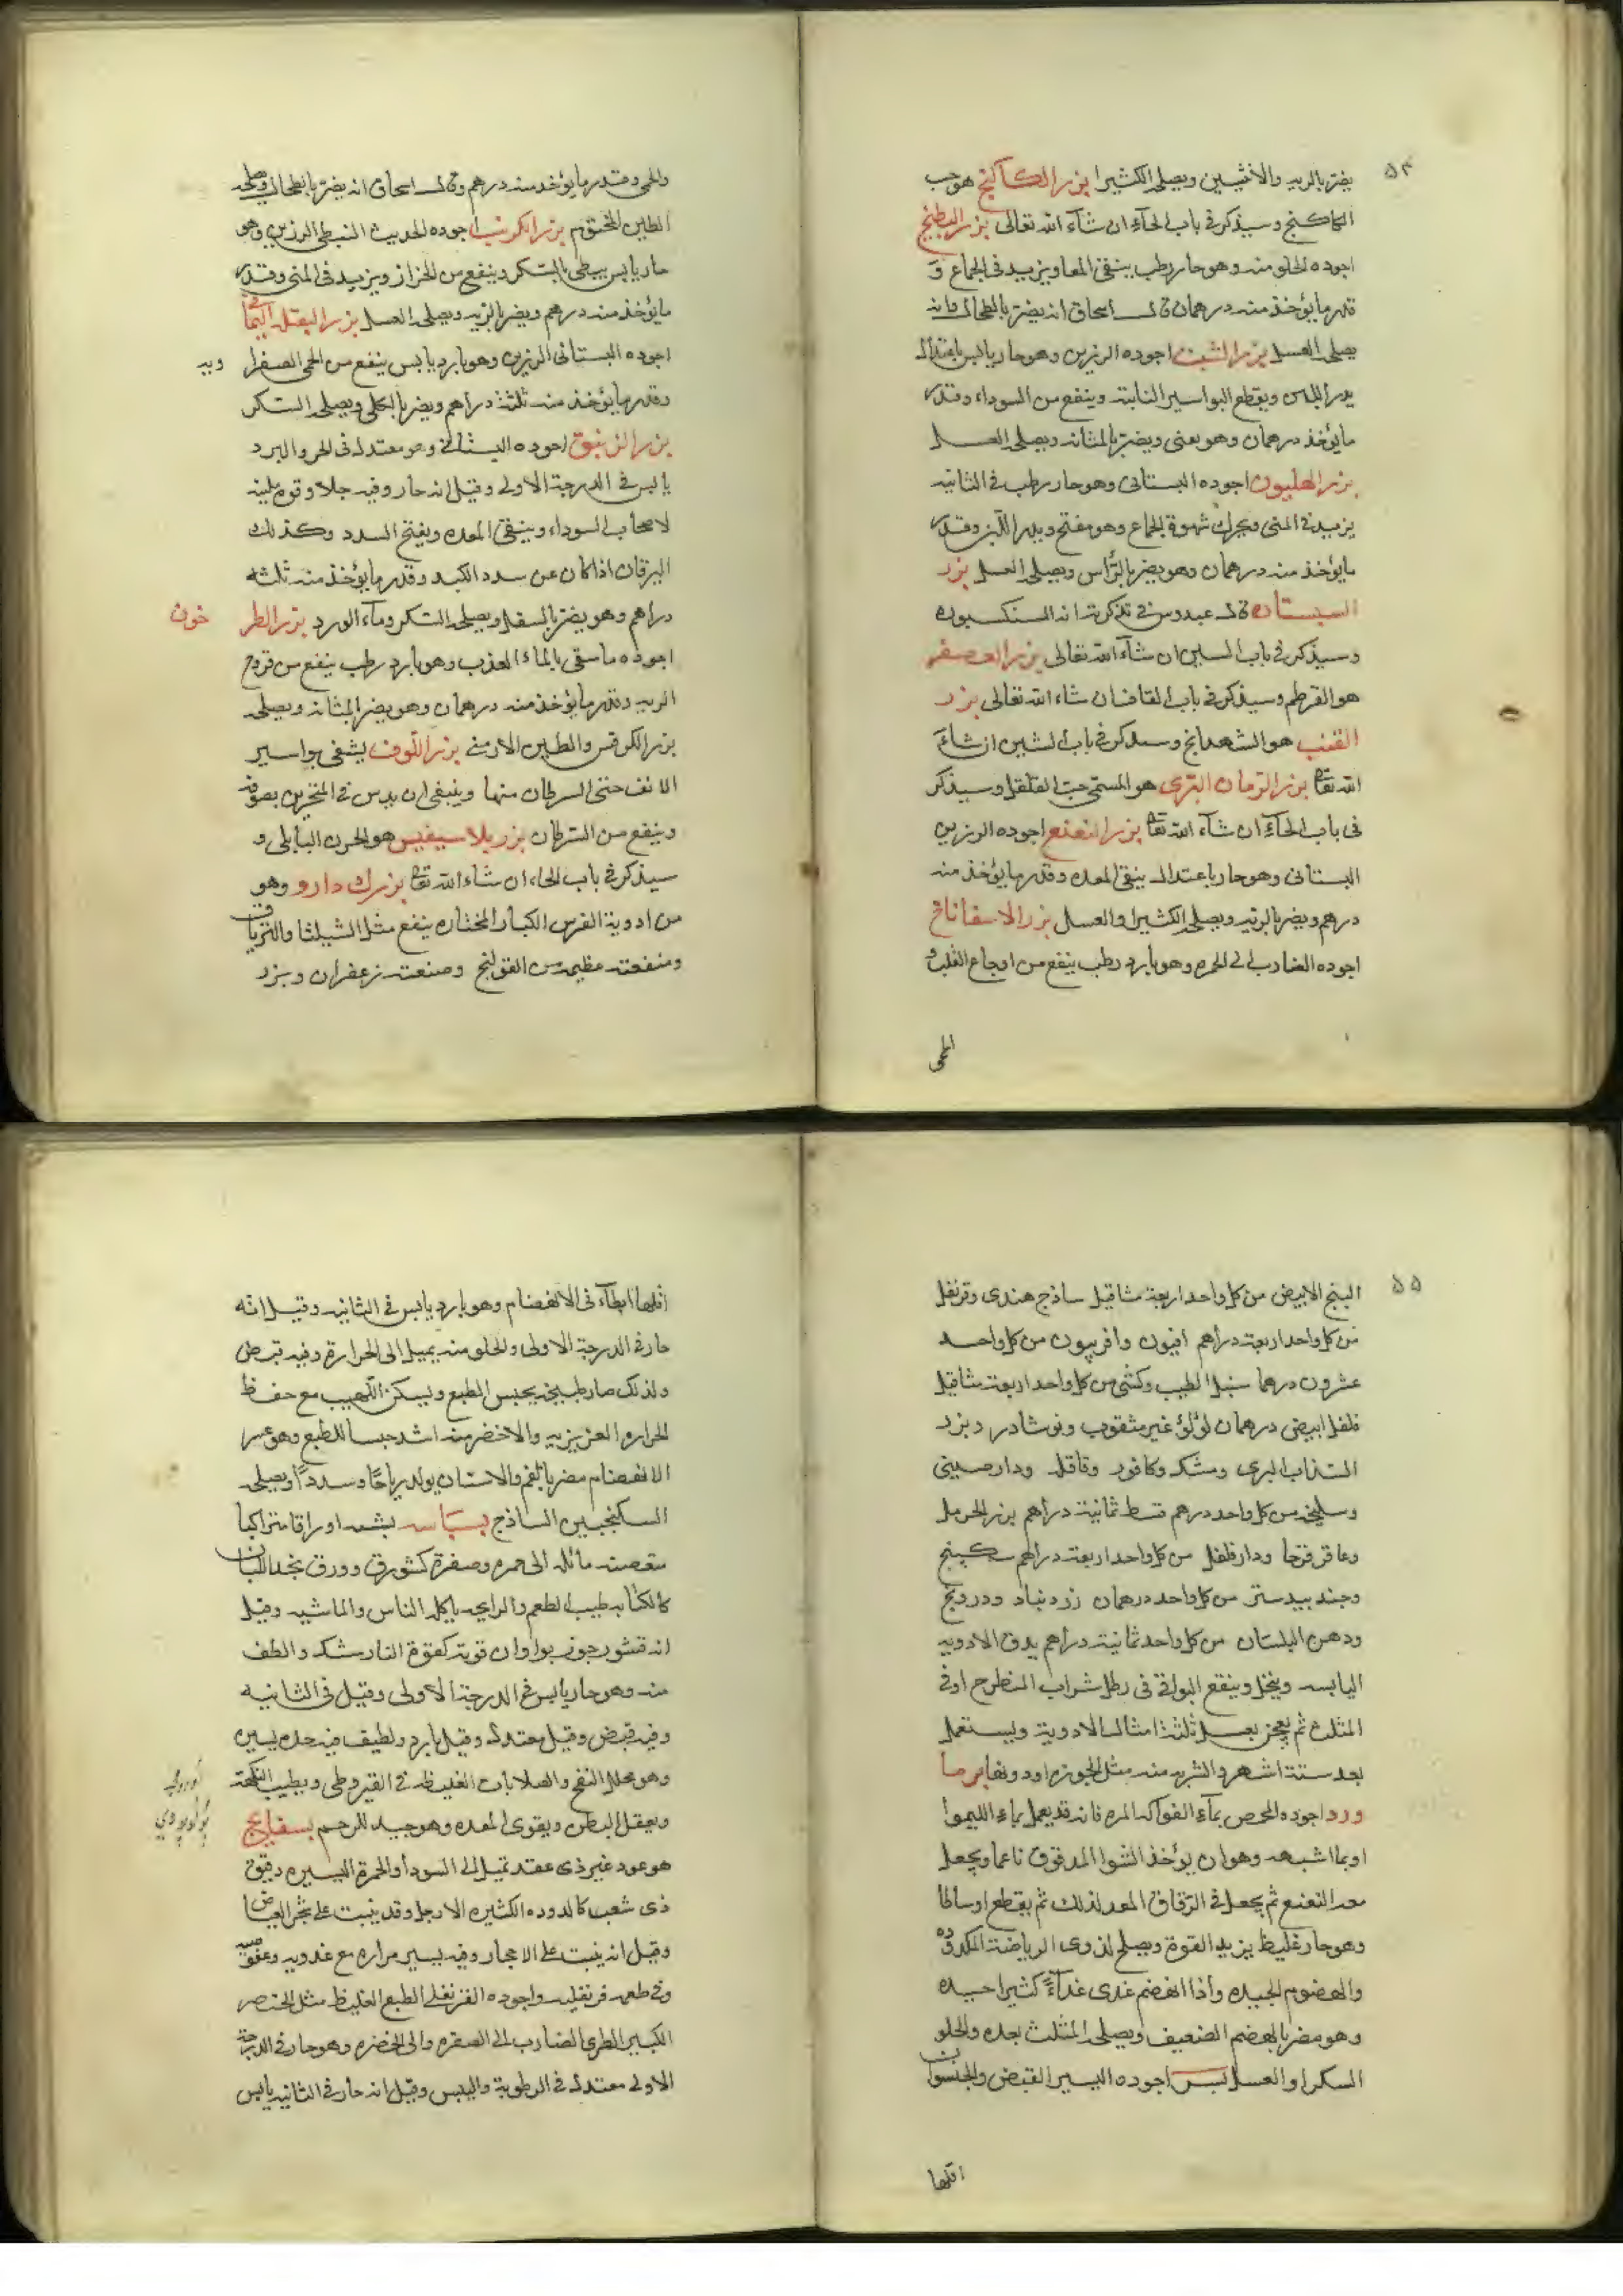 ٥٤
يضر بالريه والانثيين ويصلحه الكثيرا بزر الكاكنج هو حب
الكاكنج وسيذكر في باب الحآء ان شآء الله تعالى بزر البطيخ
اجوده الحلو منه وهو حار رطب ينقى المعا ويزيد في الجماع و
قدر ما يؤخذ منه درهمان قال اسحاق انه يضر بالطحال وانه
يصلحه العسل بزر الشبت اجوده الرزين وهو حار يابس باعتدال
يدر اللبن ويقطع البواسير النابتة وينفع من السوداء وقدر
ما يؤخذ درهمان وهو يغثى ويضر بالمثانه ويصلحه العسل
بزر الهليون اجوده البستانى وهو حار رطب في الثانيه
يزيد في المنى ويحرك شهوة الجماع وهو مفتح ويدر اللبن وقدر
ما يؤخذ منه درهمان وهو يضر بالرأس ويصلحه العسل بزر
السيستان قال عبدوس في تذكرته انه السنكسبوه
وسيذكر في باب السين ان شآء الله تعالى بزر العصفر
هو القرطم وسيذكر في باب القاف ان شاء الله تعالى بزر
القنب هو الشهدانج وسيذكر في باب الشين ان شآء
الله تعا بزر الرمان البرى هو المسمى حب القلقل وسيذكر
فى باب الحآء ان شآء الله تعا بزر النعنع اجوده الرزين
البستانى وهو حار باعتدال ينقى المعده وقدر ما يؤخذ منه
درهم ويضر بالريه ويصلحه الكثيرا والعسل بزر الاسفاناخ
اجوده الضارب الى الحمره وهو بارد رطب ينفع من اوجاع القلب و
الحمى
والحمى وقدر ما يؤخذ منه درهم وقال اسحاق انه يضر بالطحال ويصلحه
الطين المختوم بزر الكرنب اجوده الحديث النبطى الرزين وهو
حار يابس يبطى بالسكر وينفع من الحزاز ويزيد فى المنى وقدر
ما يؤخذ منه درهم ويضر بالريه ويصلحه العسل بزر البقلة اليمانيه
اجوده البستانى الرزين وهو بارد يابس ينفع من الحمى الصفرا
ويه
وقدر ما يؤخذ منه ثلثة دراهم ويضر بالكلى ويصلحه السكر
بزر الزنبق اجوده البستانى وهو معتدل فى الحر والبرد
يابس في الدرجة الاولى وقيل انه حار وفيه جلا وقوة ملينه
لاصحاب السوداء وينقى المعده ويفتح السدد وكذلك
اليرقان اذا كان عن سدد الكبد وقدر ما يؤخذ منه ثلثه
دراهم وهو يضر بالسفل ويصلحه السكر ومآء الورد بزر الطر
خون
اجوده ما سقى بالماء العذب وهو بارد رطب ينفع من قروح
الريه وقدر ما يؤخذ منه درهمان وهو يضر المثانه ويصلحه
بزر الكرفس والطين الارمنى بزر اللوف يشفى بواسير
الانف حتى السرطان منها وينبغى ان يدس في المنخرين بصوفه
وينفع من السرطان بزر بلاسيفيس هو الحرف البابلى و
سيذكر في باب الحاء ان شاء الله تعا بزرك دارو وهو
من ادوية الفرس الكبار المختاره ينفع مثل الشيلثا والترياق
ومنفعته عظيمه من القولنج وصنعته زعفران وبزر
٥٥
البنج الابيض من كل واحد اربعة مثاقيل ساذج هندى وقرنفل
من كل واحد اربعة دراهم افيون وافربيون من كل واحد
عشرون درهما سنبل الطيب وكشى من كل واحد اربعة مثاقيل
فلفل ابيض درهمان لؤلؤ غير مثقوب ونوشادر وبزر
السذاب البرى ومشك وكافور وقاقلة ودارصينى
وسليخه من كل واحد درهم قسط ثمانية دراهم بزر الحرمل
وعاقرقرحا ودارفلفل من كل واحد اربعة دراهم سكبينج
وجندبيدستر من كل واحد درهمان زرنباد ودرونج
ودهن البلسان من كل واحد ثمانية دراهم يدق الادويه
اليابسه وينخل وينقع البواقى فى رطل شراب او في
المثلث ثم يعجن بعسل ثلثة امثال الادوية ويستعمل
بعد ستة اشهر والشربه منه مثل الجوزه او دونها بزما
ورد اجوده المحمص بمآء الفواكه المره فانه قد يعمل بماء الليموا
او بما اشبهه وهو ان يؤخذ الشوا المدقوق ناعما ويجعل
معه النعنع ثم يجعل في الرقاق المعد لذلك ثم يقطع اوساطا
وهو حار غليظ يزيد القوة ويصلح لذوى الرياضة المكدوده
والهضوم الجيده واذا انهضم غذى غذآءً كثيرا جيده
وهو مضر بالهضم الضعيف ويصلحه المثلث بعده والحلو
السكر او العسل بسر اجوده اليسير القبض والجيسوان
اقلها
اقلها ابطآء فى الانهضام وهو بارد يابس في الثانيه وقيل انه
حار في الدرجة الاولى والحلو منه يميل الى الحرارة وفيه قبض
ولذلك صار طبيخه يحبس الطبع ويسكن اللهيب مع حفظ
الحراره الغريزيه والاخضر منه اشد حبسا للطبع وهو عسر
الانهضام مضر بالفم والاسنان يولد رياحًا وسددًا ويصلحه
السكنجبين الساذج بسباسه يشبه اوراقا متراكبا
متغصنه مائله الى حمره وصفرة كشور وورق
كالكبابه طيب الطعم والرايحه ياكله الناس والماشيه وقيل
انه قشور جوزبوا وان قوته كقوة النارمشك والطف
منه وهو حار يابس في الدرجة الاولى وقيل فى الثانيه
وفيه قبض وقيل معتدل وقيل بارد ولطيف فيه حده يسيره
وهو محلل النفخ والصلابات الغليظه في القيروطى ويطيب النكهة
ويعقل البطن ويقوى المعده وهو جيد للرحم بسفايج
هو عود غير ذى عقد تميل الى السودآ والحمرة اليسيره دقيق
ذى شعب كالدوده الكثيره الارجل وقد ينبت على شجر الغياض
وقيل انه ينبت على الاحجار وفيه يسير مراره مع عذوبه وعفوصه
وفي طعمه قرنفليه واجوده القرنفلى الطبع الغليظ مثل الخنصر
الكبير الطرى الضارب الى الصفره والى الخضره وهو حار في الدرجة
الاولى معتدل في الرطوبة واليبس وقيل انه حار في الثانيه يابس